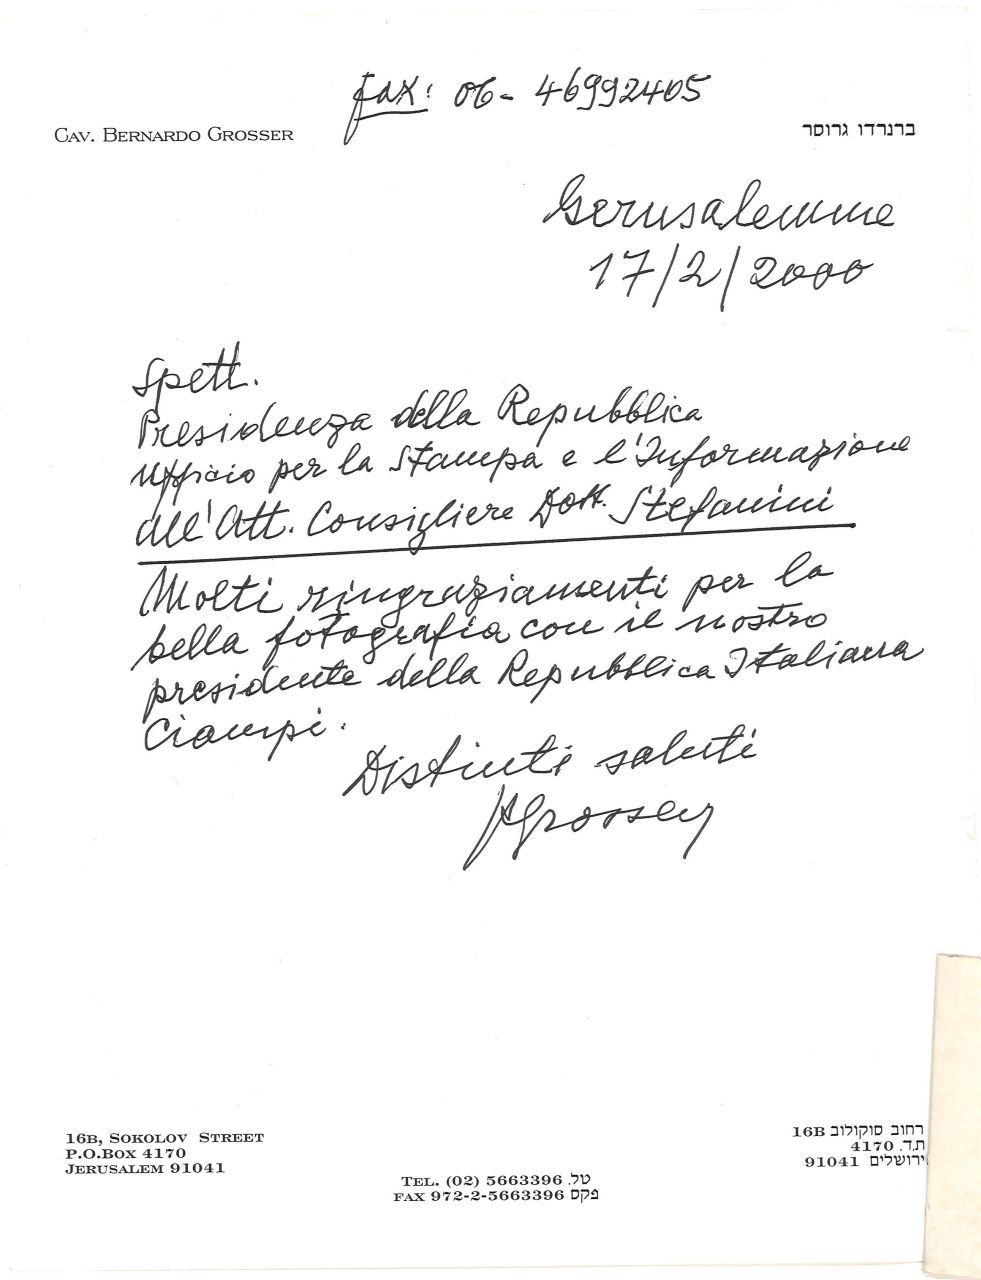 Fax: 06-46992405
CAV. BERNARDO GROSSER
ברנרדו גרוסר
Gerusalemme
17/2/2000
Spett.
Presidenza della Repubblica
Ufficio per la Stampa e l'Informazione
all'Att. Consigliere Dott. Stefanini
Molti ringraziamenti per la
bella fotografia con il nostro
presidente della Repubblica Italiana
Ciampi.
Distinti saluti
BGrosser
16B, SOKOLOV STREET
P.O.BOX 4170
JERUSALEM 91041
רחוב סוקולוב 16B
ת.ד. 4170
ירושלים 91041
TEL. (02) 5663396 טל.
FAX 972-2-5663396 פקס